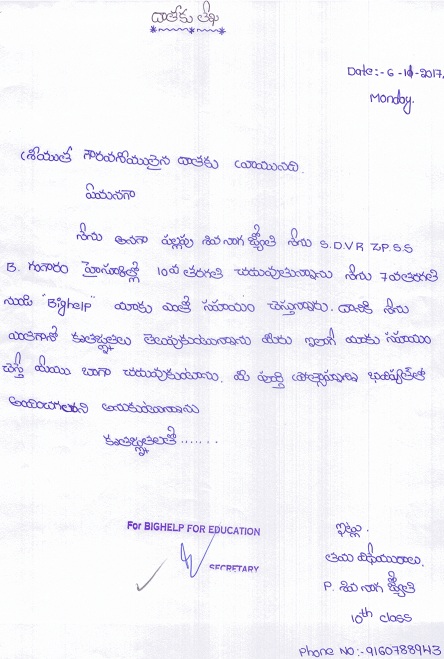 దాతకు లేఖ
Date:- 6-11-2017,
Monday.
శ్రీయుత గౌరవనీయులైన దాతకు వ్రాయునది.
ఏమనగా
నేను అనగా పల్లపు శివ నాగ జ్యోతి నేను S.D.V.R Z.P.S.S
B. గంగారం హైస్కూల్లో 10వ తరగతి చదువుతున్నాను నేను 7వతరగతి
నుండి "Bighelp" మాకు ఎంతో సహాయం చేస్తున్నారు. దానికి నేను
ఎంతగానో కృతజ్ఞతలు తెలుపుకుంటున్నాను మీరు ఇలాగే మాకు సహాయం
చేస్తే మేము బాగా చదువుకుంటాను. మీ పూర్తి ప్రోత్సాహాన్ని భవిష్యత్తులో
అందించగలరని అనుకుంటున్నాను
కృతజ్ఞతలతో.......
For BIGHELP FOR EDUCATION
SECRETARY
ఇట్లు.
తమ విధేయురాలు.
P. శివ నాగ జ్యోతి
10th class
Phone No:-9160788943